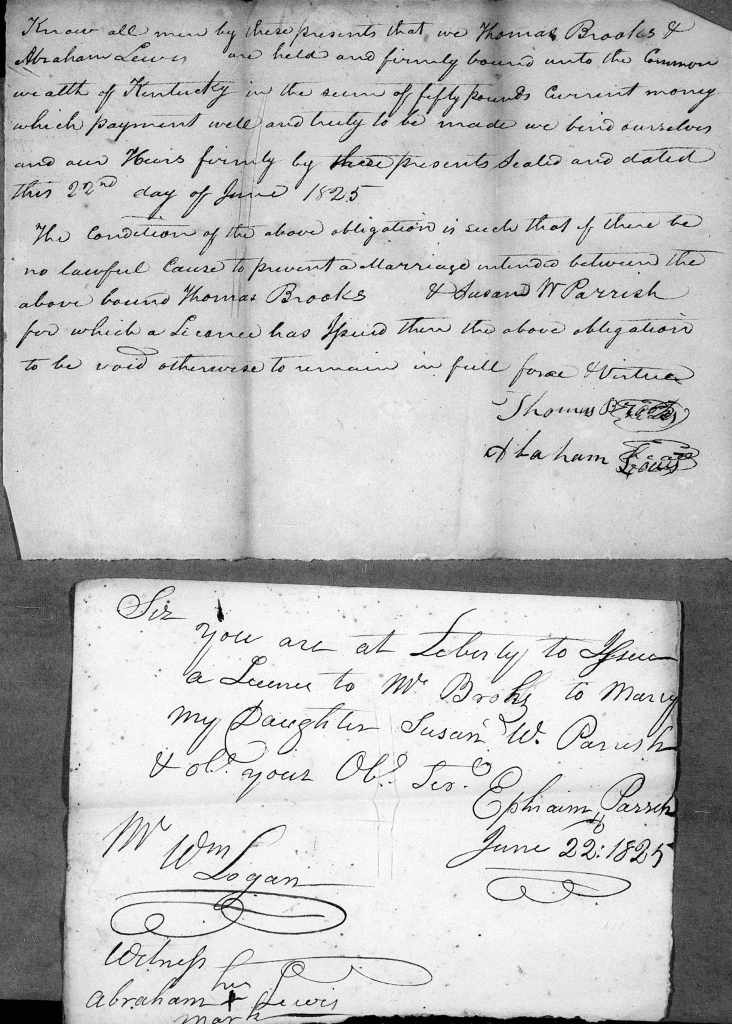 Know all men by these presents that we Thomas Brooks &
Abraham Lewis are held and firmly bound unto the Common
wealth of Kentucky in the sum of fifty pounds Current money
which payment well and truly to be made we bind ourselves
and our Heirs firmly by these presents Sealed and dated
this 22nd day of June 1825
The Condition of the above obligation is such that if there be
no lawful Cause to prevent a Marriage intended between the
above bound Thomas Brooks & Susand W Parrish
for which a Licence has Issued then the above obligation
to be void otherwise to remain in full force & Virtue
Thomas Brooks
Abraham Lewis
Sir
you are at Liberty to Issue
a Licence to Mr Broks to Marry
my Daughter Susan W. Parrish
& obe your Obt. Ser.
Ephraim Parrish
June 22d: 1825
Mr Wm
Logan
Witness
her
Abraham + Lewis
mark